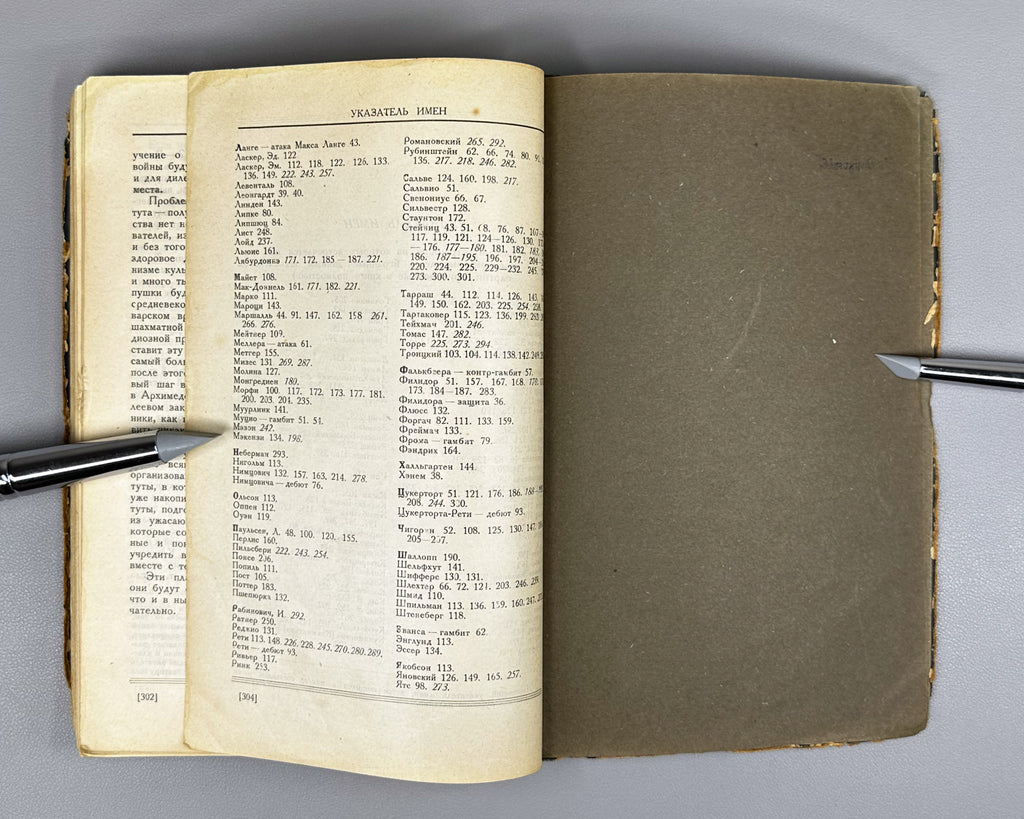 учение о
войны буду
и для диле
места.
Пробле
тута — полу
ства нет н
вателей, из
и без того
здоровое д
низме куль
и много ты
пушки буд
средневеко
варском вр
шахматной
диозной пр
ставит эту
самый боль
после этого
вый шаг в
в Архимед
леевом зак
ники, как
вить
всяк
организова
туты, в кот
уже накопи
туты, подго
из ужасаю
которые со
ные и пон
учредить в
вместе с те
Эти пла
они будут
что и в ны
чательно.
[302]
УКАЗАТЕЛЬ ИМЕН
Ланге — атака Макса Ланге 43.
Ласкер, Эд. 122
Ласкер, Эм. 112. 118. 122. 126. 133
136. 149. 222. 243. 257.
Левенталь 108.
Леонгардт 39. 40.
Линден 143.
Липке 80.
Липшюц 84.
Лист 248.
Лойд 237.
Льюис 161.
Лябурдоннэ 171. 172. 185 — 187. 221.
Майет 108.
Мак-Доннель 161. 171. 182. 221.
Марко 111.
Мароци 143.
Маршалль 44. 91. 147. 162. 158 261.
266. 276.
Мейтнер 109.
Меллера — атака 61.
Метгер 155.
Мизес 131. 269. 287.
Молина 127.
Монгредиен 180.
Морфи 100. 117. 172. 173. 177. 181.
200. 203. 204. 235.
Муурлинк 141.
Муцио — гамбит 51. 51.
Мэзон 242.
Мэкензи 134. 198.
Неберман 293.
Нигольм 113.
Нимцович 132. 157. 163. 214. 278.
Нимцовича — дебют 76.
Ольсон 113.
Оппен 112.
Оуэн 119.
Паульсен, Л. 48. 100. 120. 155.
Перлис 160.
Пильсбери 222. 243. 254.
Понсе 206.
Попиль 111.
Пост 105.
Поттер 183.
Пшепюрка 132.
Рабинович, И. 292.
Ратнер 250.
Реджио 131.
Рети 113. 148. 226. 228. 245. 270. 280. 289.
Рети — дебют 93.
Ривьер 117.
Ринк 253.
[304]
Романовский 265. 292.
Рубинштейн 62. 66. 74. 80.
136. 217. 218. 246. 282.
Сальве 124. 160. 198. 217.
Сальвио 51.
Свенониус 66. 67.
Сильвестр 128.
Стаунтон 172.
Стейниц 43. 51. 68. 76. 87. 167
117. 119. 121. 124 — 126. 130.
— 176. 177 — 180. 181. 182.
186. 187 — 195. 196. 197. 204
220. 224. 225. 229 — 232. 245.
273. 300. 301.
Тарраш 44. 112. 114. 126. 143.
149. 150. 162. 203. 225. 254.
Тартаковер 115. 123. 136. 199.
Тейхмач 201. 246.
Томас 147. 282.
Торре 225. 273. 294
Троицкий 103. 104. 114. 138. 142.
Фалькбеера — контр-гамбит 57.
Филидор 51. 157. 167. 168.
173. 184 — 187. 283.
Филидора — защита 36.
Флюсс 132.
Форгач 82. 111. 133. 159.
Фрейман 133.
Фрома — гамбит 79.
Фэндрих 164.
Халльгартен 144.
Хэнем 38.
Цукерторт 51. 121. 176. 186.
208. 244. 300.
Цукерторта-Рети — дебют 93.
Чигорин 52. 108. 125. 130.
205 — 207.
Шаллопп 190.
Шельфхут 141.
Шифферс 130. 131.
Шлехтер 66. 72. 121. 203. 246.
Шмид 110.
Шпильман 113. 136. 159. 160.
Штенеберг 118.
Эванса — гамбит 62.
Энглунд 113.
Эссер 134.
Якобсон 113.
Яновский 126. 149. 165. 257.
Ятс 98. 273.